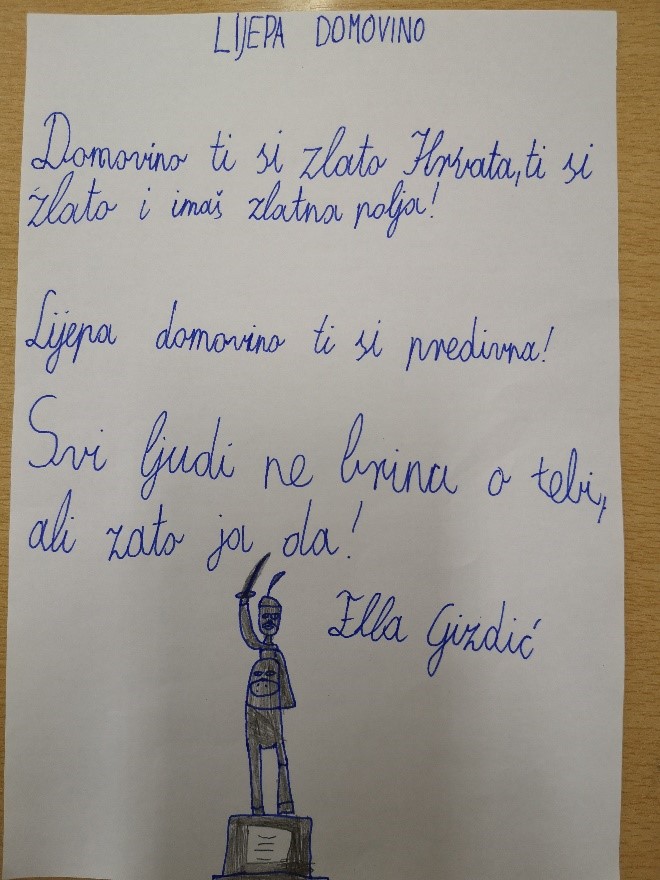 LIJEPA DOMOVINO
Domovino ti si zlato Hrvata, ti si
zlato i imaš zlatna polja!
Lijepa domovino ti si predivna!
Svi ljudi ne brinu o tebi,
ali zato ja da!
Ella Gizdić